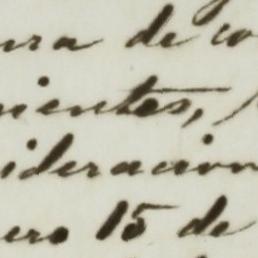 ura de co
nientes,
ideracion
ero 15 de